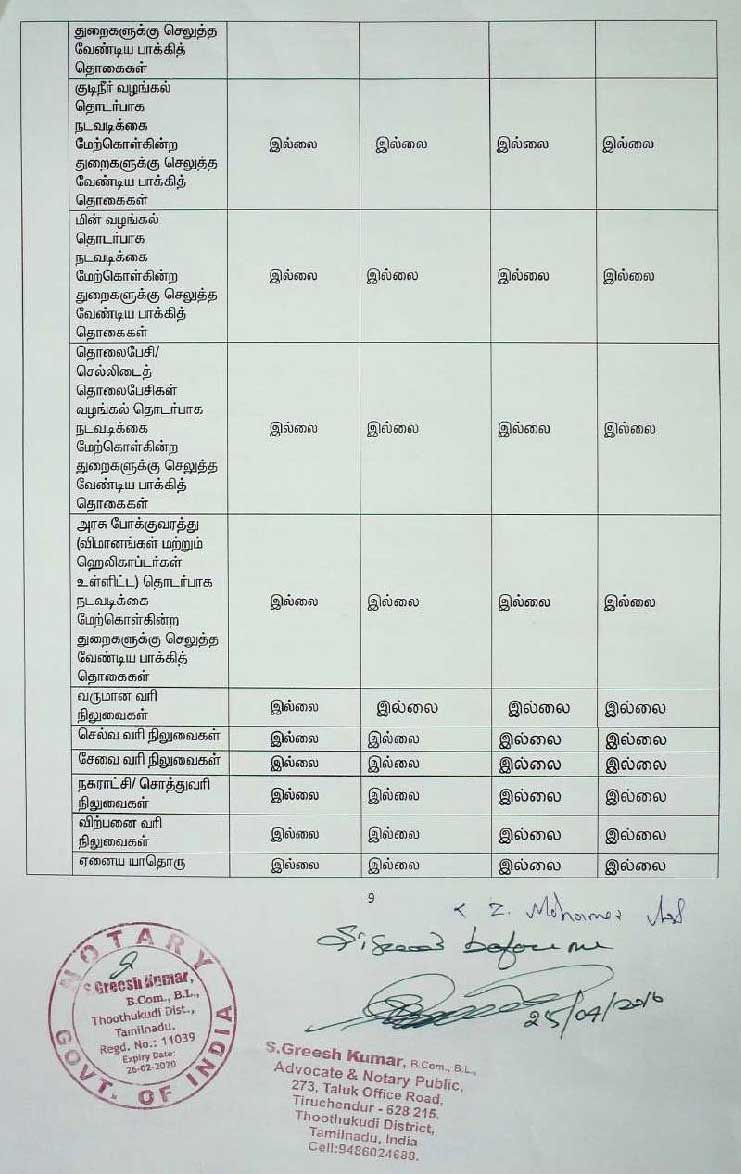 துறைகளுக்கு செலுத்த
வேண்டிய பாக்கித்
தொகைகள்
குடிநீர் வழங்கல்
தொடர்பாக
நடவடிக்கை
மேற்கொள்கின்ற
துறைகளுக்கு செலுத்த
வேண்டிய பாக்கித்
தொகைகள்
இல்லை இல்லை இல்லை இல்லை
மின் வழங்கல்
தொடர்பாக
நடவடிக்கை
மேற்கொள்கின்ற
துறைகளுக்கு செலுத்த
வேண்டிய பாக்கித்
தொகைகள்
இல்லை இல்லை இல்லை இல்லை
தொலைபேசி/
செல்லிடைத்
தொலைபேசிகள்
வழங்கல் தொடர்பாக
நடவடிக்கை
மேற்கொள்கின்ற
துறைகளுக்கு செலுத்த
வேண்டிய பாக்கித்
தொகைகள்
இல்லை இல்லை இல்லை இல்லை
அரசு போக்குவரத்து
(விமானங்கள் மற்றும்
ஹெலிகாப்டர்கள்
உள்ளிட்ட) தொடர்பாக
நடவடிக்கை
மேற்கொள்கின்ற
துறைகளுக்கு செலுத்த
வேண்டிய பாக்கித்
தொகைகள்
இல்லை இல்லை இல்லை இல்லை
வருமான வரி
நிலுவைகள்
இல்லை இல்லை இல்லை இல்லை
செல்வ வரி நிலுவைகள் இல்லை இல்லை இல்லை இல்லை
சேவை வரி நிலுவைகள் இல்லை இல்லை இல்லை இல்லை
நகராட்சி/ சொத்துவரி
நிலுவைகள்
இல்லை இல்லை இல்லை இல்லை
விற்பனை வரி
நிலுவைகள்
இல்லை இல்லை இல்லை இல்லை
ஏனைய யாதொரு இல்லை இல்லை இல்லை இல்லை
9
before me
25/04/2016
NOTARY
S.Greesh Kumar,
B.Com., B.L.,
Thoothukudi Dist.,
Tamilnadu.
Regd. No.: 11039
Expiry Date:
26-02-2020
GOVT. OF INDIA
S.Greesh Kumar, B.Com., B.L.,
Advocate & Notary Public,
273, Taluk Office Road,
Tiruchendur - 628 215.
Thoothukudi District,
Tamilnadu, India
Cell:9486024688.